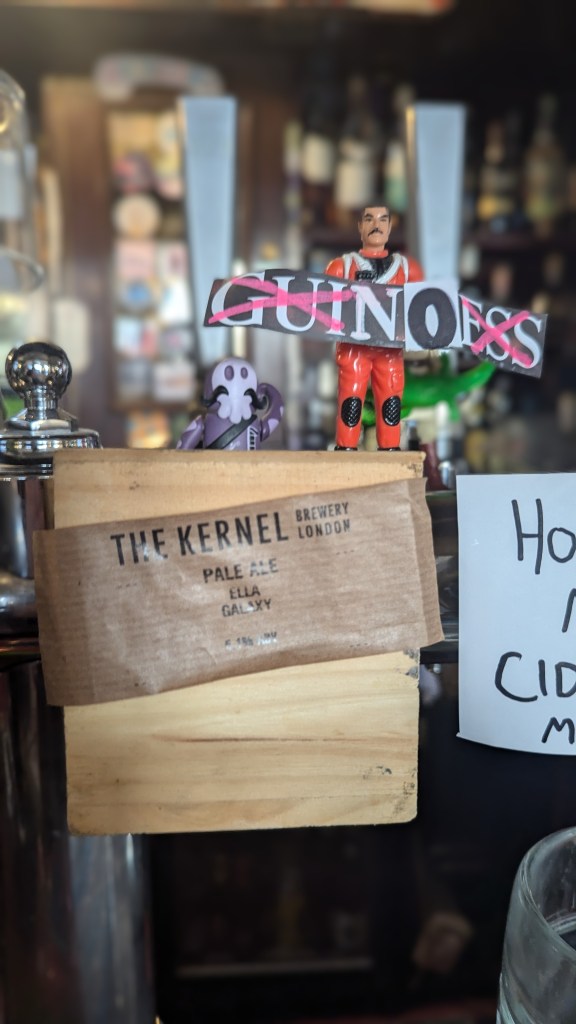 GUINOESS
THE KERNEL BREWERY
LONDON
PALE ALE
ELLA
GALAXY
HO
CID
M